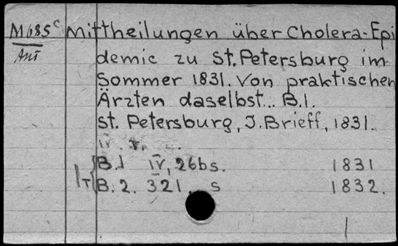 M685c Mittheilungen über Cholera-Epi
Aut demie zu St. Petersburg im
Sommer 1831. Von praktischen
Ärzten daselbst... B.1.
St. Petersburg, J. Brieff, 1831.
B.1 IV, 26bs. 1831
B.2. 321 s 1832.